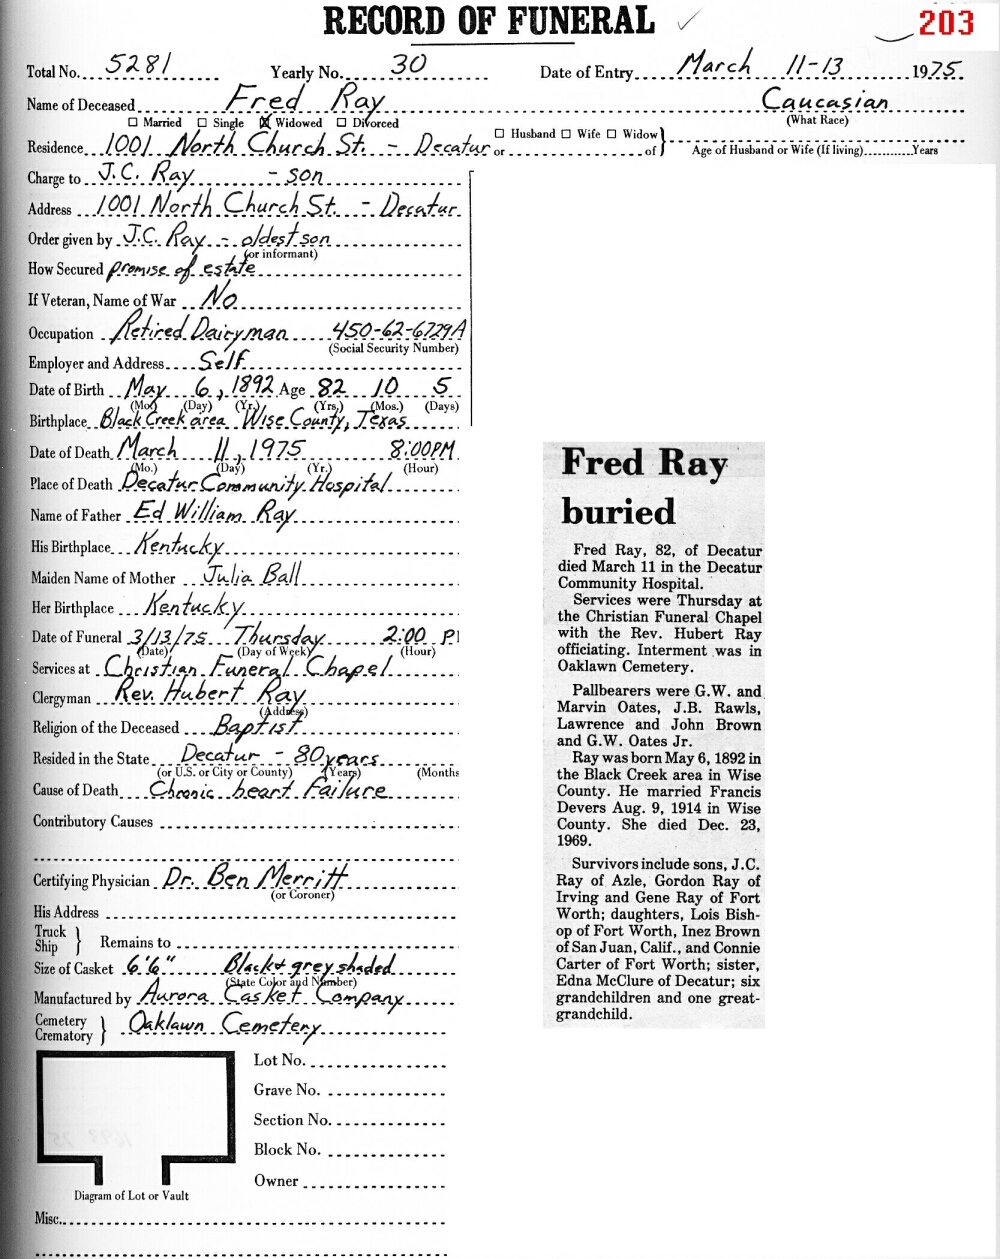 RECORD OF FUNERAL ✓ 203
Total No. 5281 Yearly No. 30 Date of Entry March 11-13 1975
Name of Deceased Fred Ray Caucasian
☐ Married ☐ Single ☒ Widowed ☐ Divorced (What Race)
Residence 1001 North Church St. - Decatur or ☐ Husband ☐ Wife ☐ Widow of } Age of Husband or Wife (If living) Years
Charge to J.C. Ray - son
Address 1001 North Church St. - Decatur
Order given by J.C. Ray - oldest son
(or informant)
How Secured promise of estate
If Veteran, Name of War No
Occupation Retired Dairyman 450-62-6729A
(Social Security Number)
Employer and Address Self
Date of Birth May 6, 1892 Age 82 10 5
(Mo.) (Day) (Yr.) (Yrs.) (Mos.) (Days)
Birthplace Black Creek area Wise County, Texas
Date of Death March 11, 1975 8:00PM
(Mo.) (Day) (Yr.) (Hour)
Place of Death Decatur Community Hospital
Name of Father Ed William Ray
His Birthplace Kentucky
Maiden Name of Mother Julia Ball
Her Birthplace Kentucky
Date of Funeral 3/13/75 Thursday 2:00 P
(Date) (Day of Week) (Hour)
Services at Christian Funeral Chapel
Clergyman Rev. Hubert Ray
(Address)
Religion of the Deceased Baptist
Resided in the State Decatur - 80 years
(or U.S. or City or County) (Years) (Months
Cause of Death Chronic heart Failure
Contributory Causes
Certifying Physician Dr. Ben Merritt
(or Coroner)
His Address
Truck
Ship } Remains to
Size of Casket 6'6" Black & grey shaded
(State Color and Number)
Manufactured by Aurora Casket Company
Cemetery
Crematory } Oaklawn Cemetery
Lot No.
Grave No.
Section No.
Block No.
Owner
Diagram of Lot or Vault
Misc.
Fred Ray
buried
Fred Ray, 82, of Decatur
died March 11 in the Decatur
Community Hospital.
Services were Thursday at
the Christian Funeral Chapel
with the Rev. Hubert Ray
officiating. Interment was in
Oaklawn Cemetery.
Pallbearers were G.W. and
Marvin Oates, J.B. Rawls,
Lawrence and John Brown
and G.W. Oates Jr.
Ray was born May 6, 1892 in
the Black Creek area in Wise
County. He married Francis
Devers Aug. 9, 1914 in Wise
County. She died Dec. 23,
1969.
Survivors include sons, J.C.
Ray of Azle, Gordon Ray of
Irving and Gene Ray of Fort
Worth; daughters, Lois Bish-
op of Fort Worth, Inez Brown
of San Juan, Calif., and Connie
Carter of Fort Worth; sister,
Edna McClure of Decatur; six
grandchildren and one great-
grandchild.